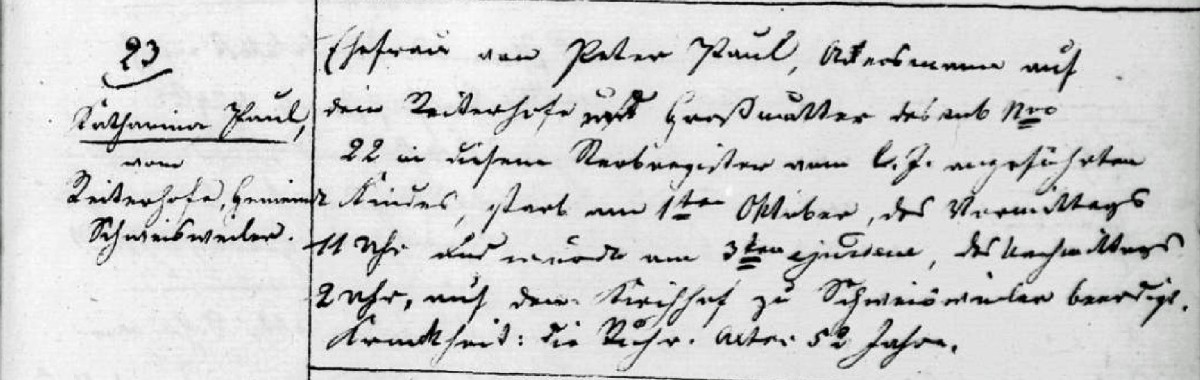 23
Katharina Paul,
vom
Reiterhofe, Gemeinde
Schweisweiler.
Ehefrau von Peter Paul, Ackersmann auf
dem Reiterhofe und Großmutter des sub Nro
22 in diesem Sterbregister vom l. J. angeführten
Kindes, starb am 1ten Oktober, des Vormittags
11 Uhr und wurde am 3ten ejusdem, des Nachmittags
2 Uhr, auf dem Kirchhof zu Schweisweiler beerdigt.
Krankheit: die Ruhr. Alter 52 Jahre.